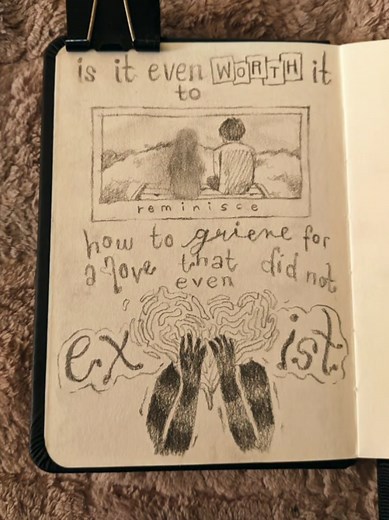 is it even WORTH it
to
reminisce
how to grieve for
a love that did not
even
exist.